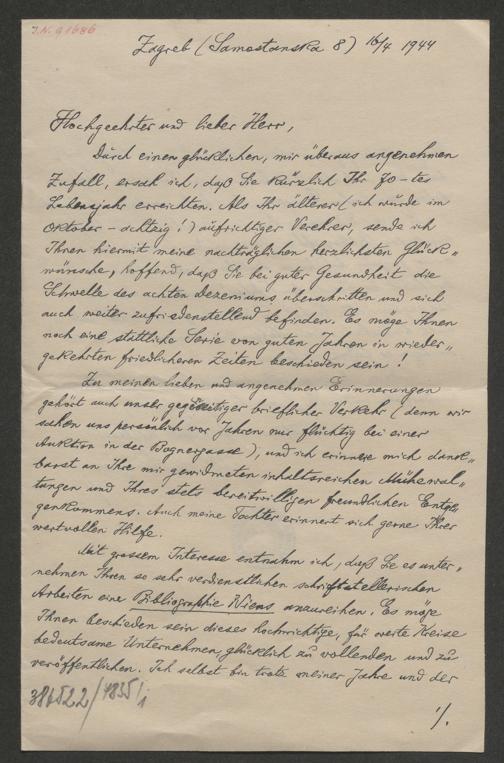 J.N. 91686
Zagreb (Samostanska 8) 16/4 1944
Hochgeehrter und lieber Herr,
Durch einen glücklichen, mir überaus angenehmen
Zufall, ersah ich, daß Sie kürzlich Ihr 70-tes
Lebensjahr erreichten. Als Ihr älterer (ich würde im
Oktober - achtzig!) aufrichtiger Verehrer, sende ich
Ihnen hiermit meine nachträglichen herzlichsten Glück„
wünsche, hoffend, daß Sie bei guter Gesundheit die
Schwelle des achten Dezeniums überschritten und sich
auch weiter zufriedenstellend befinden. Es möge Ihnen
noch eine stattliche Serie von guten Jahren in wieder„
gekehrten friedlicheren Zeiten beschieden sein!
Zu meinen lieben und angenehmen Erinnerungen
gehört auch unser gegenseitiger brieflicher Verkehr (denn wir
sahen uns persönlich vor Jahren nur flüchtig bei einer
Auktion in der Bognergasse), und ich erinnere mich dank„
barst an Ihre mir gewidmeten inhaltsreichen Mühewal„
tungen und Ihres stets bereitwilligen freundlichen Entge„
genkommens. Auch meine Tochter erinnert sich gerne Ihrer
wertvollen Hilfe.
Mit grossem Interesse entnahm ich, daß Sie es unter„
nehmen Ihren so sehr verdienstlichen schriftstellerischen
Arbeiten eine Bibliographie Wiens anzureihen. Es möge
Ihnen beschieden sein dieses hochwichtige, für weite Kreise
bedeutsame Unternehmen glücklich zu vollenden und zu
veröffentlichen. Ich selbst bin trotz meiner Jahre und der
./.